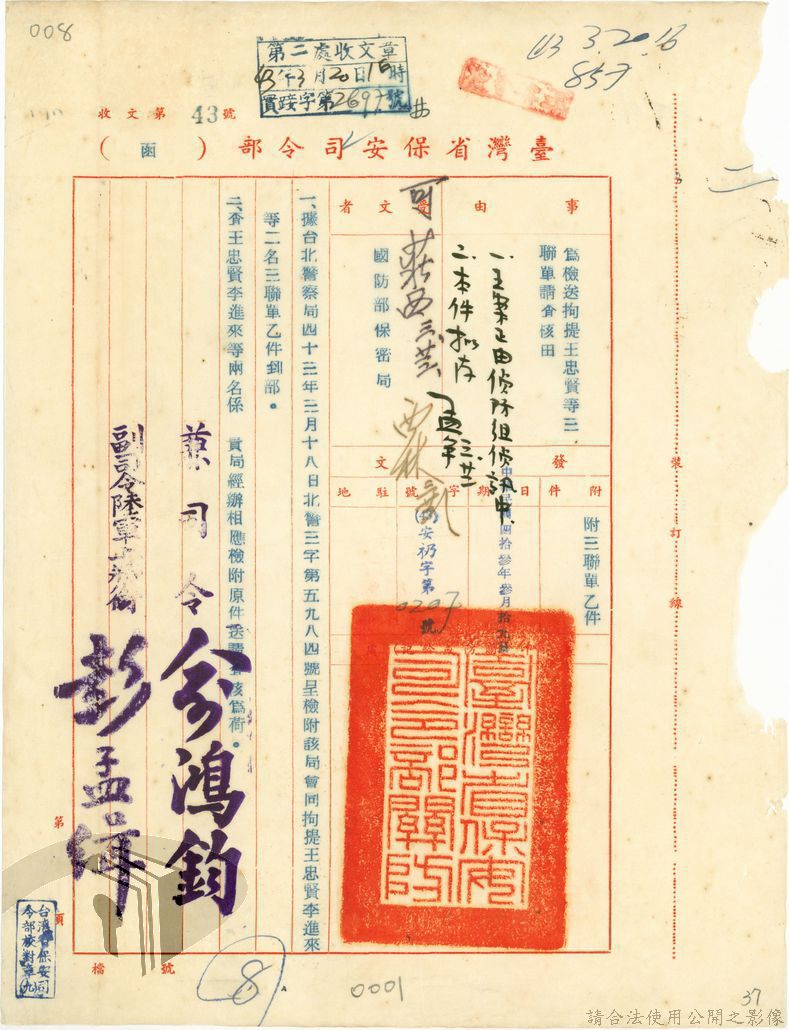 008
第二處收文章
43年3月20日16時
實踐字第2697號
43 3.20.16
857
收文第43號
臺灣省保安司令部(函)
事由
為檢送拘提王忠賢等三
聯單請查核由
受文者
國防部保密局
可
一、王案正由偵防組偵訊中
二、本件擬存
附件
附三聯單乙件
發文
日期
中華民國四拾參年參月拾九日
字號
(43)安礽字第0207號
駐地
臺灣省保安司令部關防
一、據台北警察局四十三年三月十八日北警三字第五九八四號呈檢附該局會同拘提王忠賢李進來
等二名三聯單乙件到部。
二、查王忠賢李進來等兩名係 貴局經辦相應檢附原件送請查核為荷。
兼司令 俞鴻鈞
副司令陸軍上將銜 彭孟緝
裝訂線
第 頁
檔號
台灣省保安司
令部校對章九
8
0001
37
請合法使用公開之影像